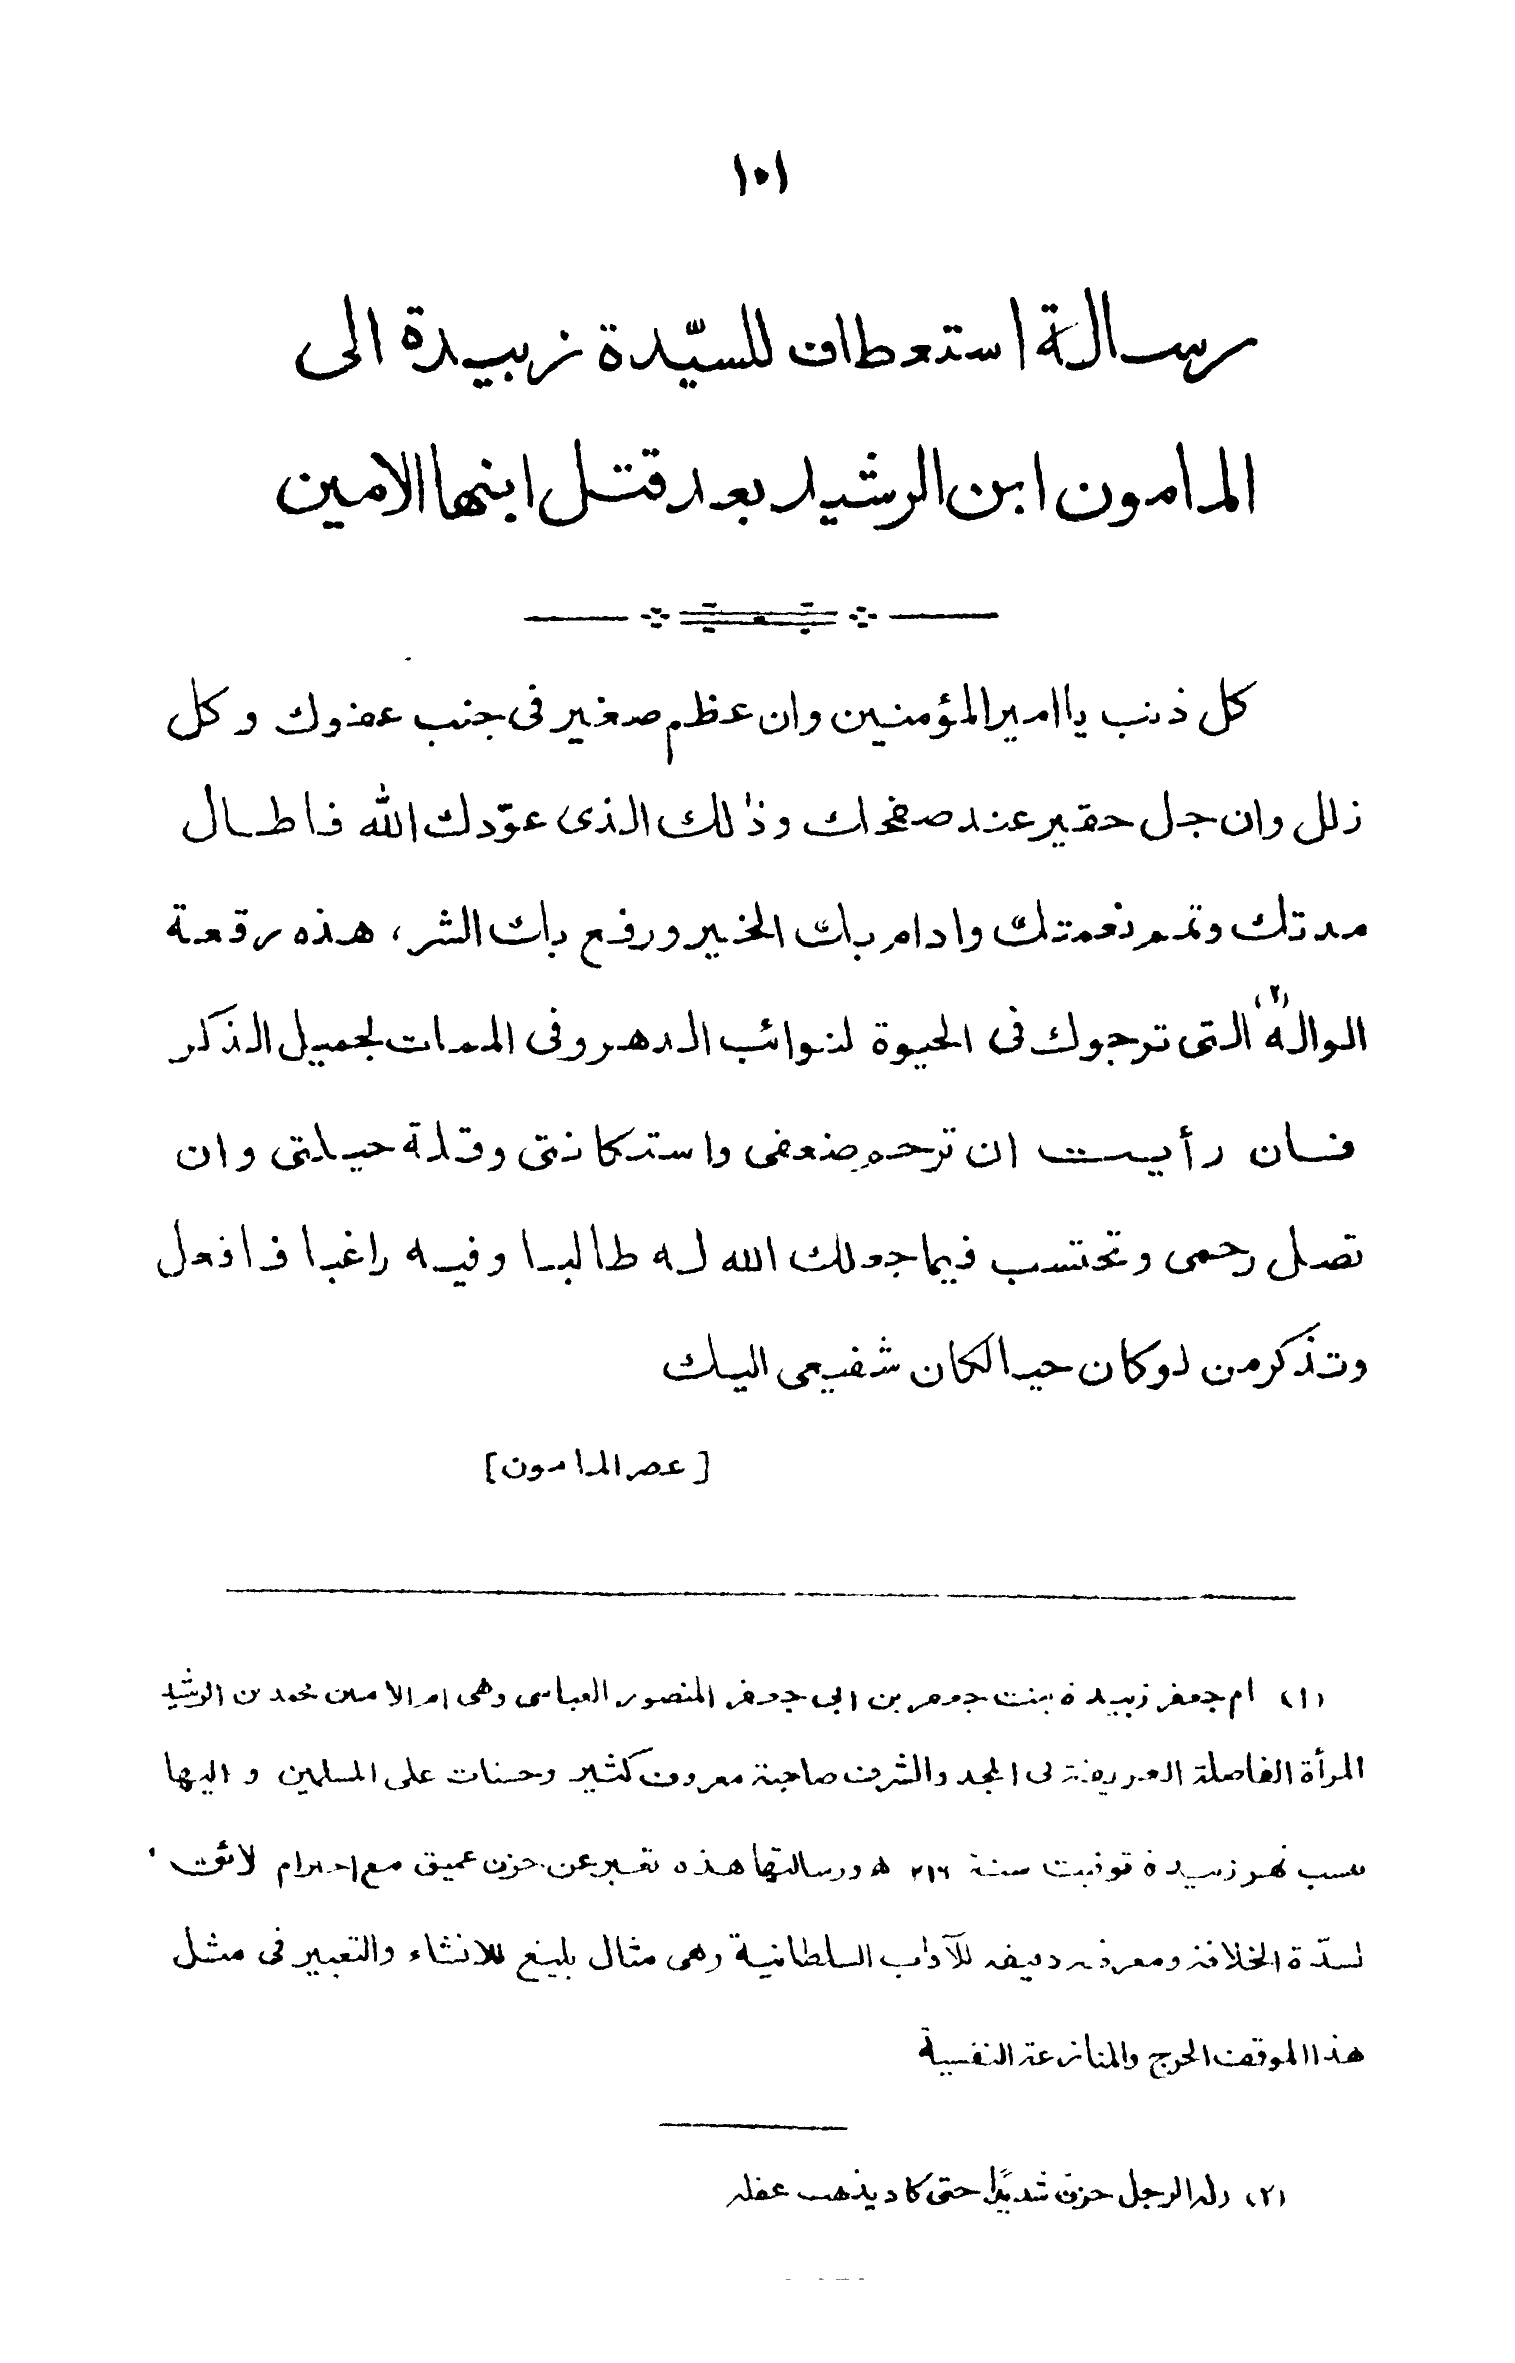 ١٠١
رسالة استعطاف للسيّدة زبيدة الى
المامون ابن الرشيد بعد قتل ابنها الامين
كل ذنب يا امير المؤمنين وان عظم صغير في جنب عفوك وكل
زلل وان جل حقير عند صفحك وذٰلك الذى عوّدك الله فاطال
مدتك وتمم نعمتك وادام بك الخير ورفع بك الشر، هذه رقعة
الواله (٢) التى ترجوك فى الحيوة لنوائب الدهر وفى الممات لجميل الذكر
فان رأيت ان ترحم ضعفى واستكانتى وقلة حيلتى وان
تصل رحمى وتحتسب فيما جعلك الله له طالبا وفيه راغبا فافعل
وتذكر من لو كان حيا لكان شفيعى اليك
[عصر المامون]
(١) ام جعفر زبيدة بنت جعفر بن ابى جعفر المنصور العباسى وهى ام الامين محمد بن الرشيد
المرأة الفاضلة العريقة فى المجد والشرف صاحبة معروف كثير وحسنات على المسلمين و اليها
ينسب نهر زبيدة توفيت سنة ٢١٦ ھ ورسالتها هذه تعبير عن حزن عميق مع احترام لائق
لسدّة الخلافة ومعرفة دقيقة للآداب السلطانية وهى مثال بليغ للانشاء والتعبير فى مثل
هذا الموقف الحرج والمنازعة النفسية
(٢) وله الرجل حزن شديدًا حتى كاد يذهب عقله